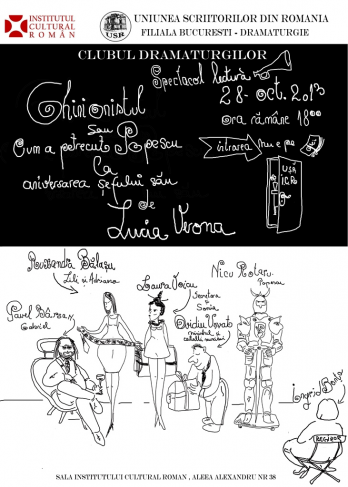 INSTITUTUL
CULTURAL
ROMÂN
USR
UNIUNEA SCRIITORILOR DIN ROMANIA
FILIALA BUCURESTI - DRAMATURGIE
CLUBUL DRAMATURGILOR
Spectacol lectură
28. oct. 2013
ora rămâne 18⁰⁰
Ghinionistul
sau
Cum a petrecut Popescu
Ca
aniversarea șefului său
de
Lucia Verona
intrarea nu e pe
USR
I.C.R.
Ruxandra Bălașu
Lili și Adriana
Laura Voicu
Sonia
Nicu Rotaru
Popescu
Pavel Bârsan
Gabriel
Ovidiu Uvat
ministrul și
Ingrid
REGIZOR
SALA INSTITUTULUI CULTURAL ROMAN , ALEEA ALEXANDRU NR 38